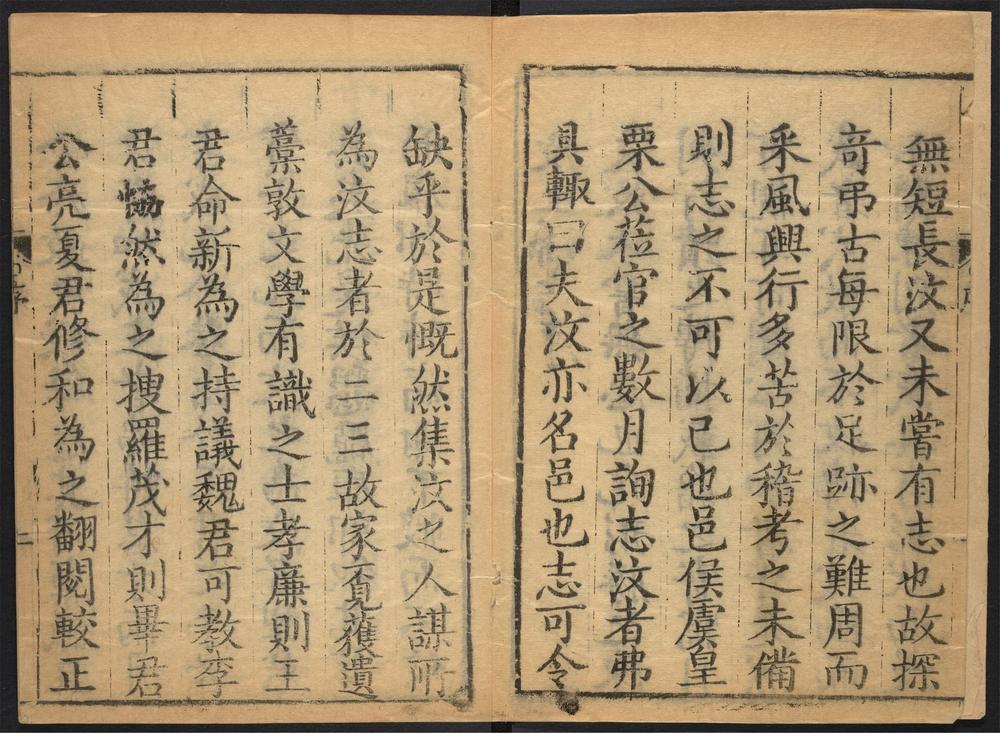 無短長汶又未嘗有志也故探
竒弔古每限於足跡之難周而
采風興行多苦於稽考之未備
則志之不可以已也邑侯虞皇
栗公蒞官之數月詢志汶者弗
具輙曰夫汶亦名邑也志可令
缺乎於是慨然集汶之人謀所
為汶志者於二三故家覔舊遺
藁敦文學有識之士孝廉則王
君命新為之持議魏君可教李
君 然為之搜羅茂才則畢君
公亮夏君修和為之翻閱較正
序
二